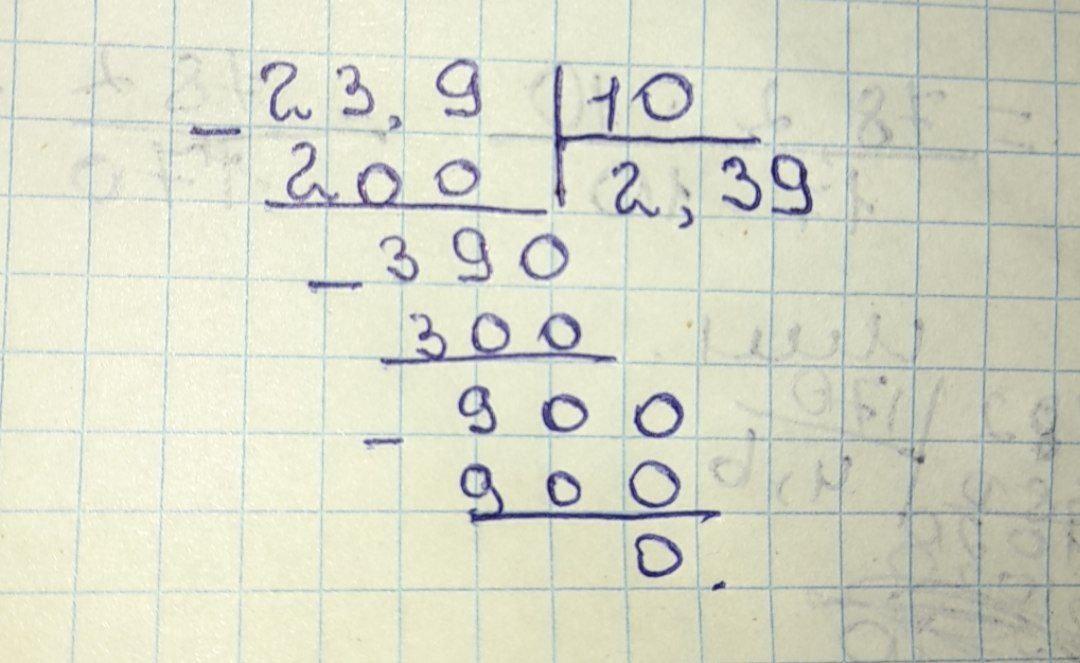 - 23,9 | 10
200 | 2,39
- 390
300
- 900
900
0.